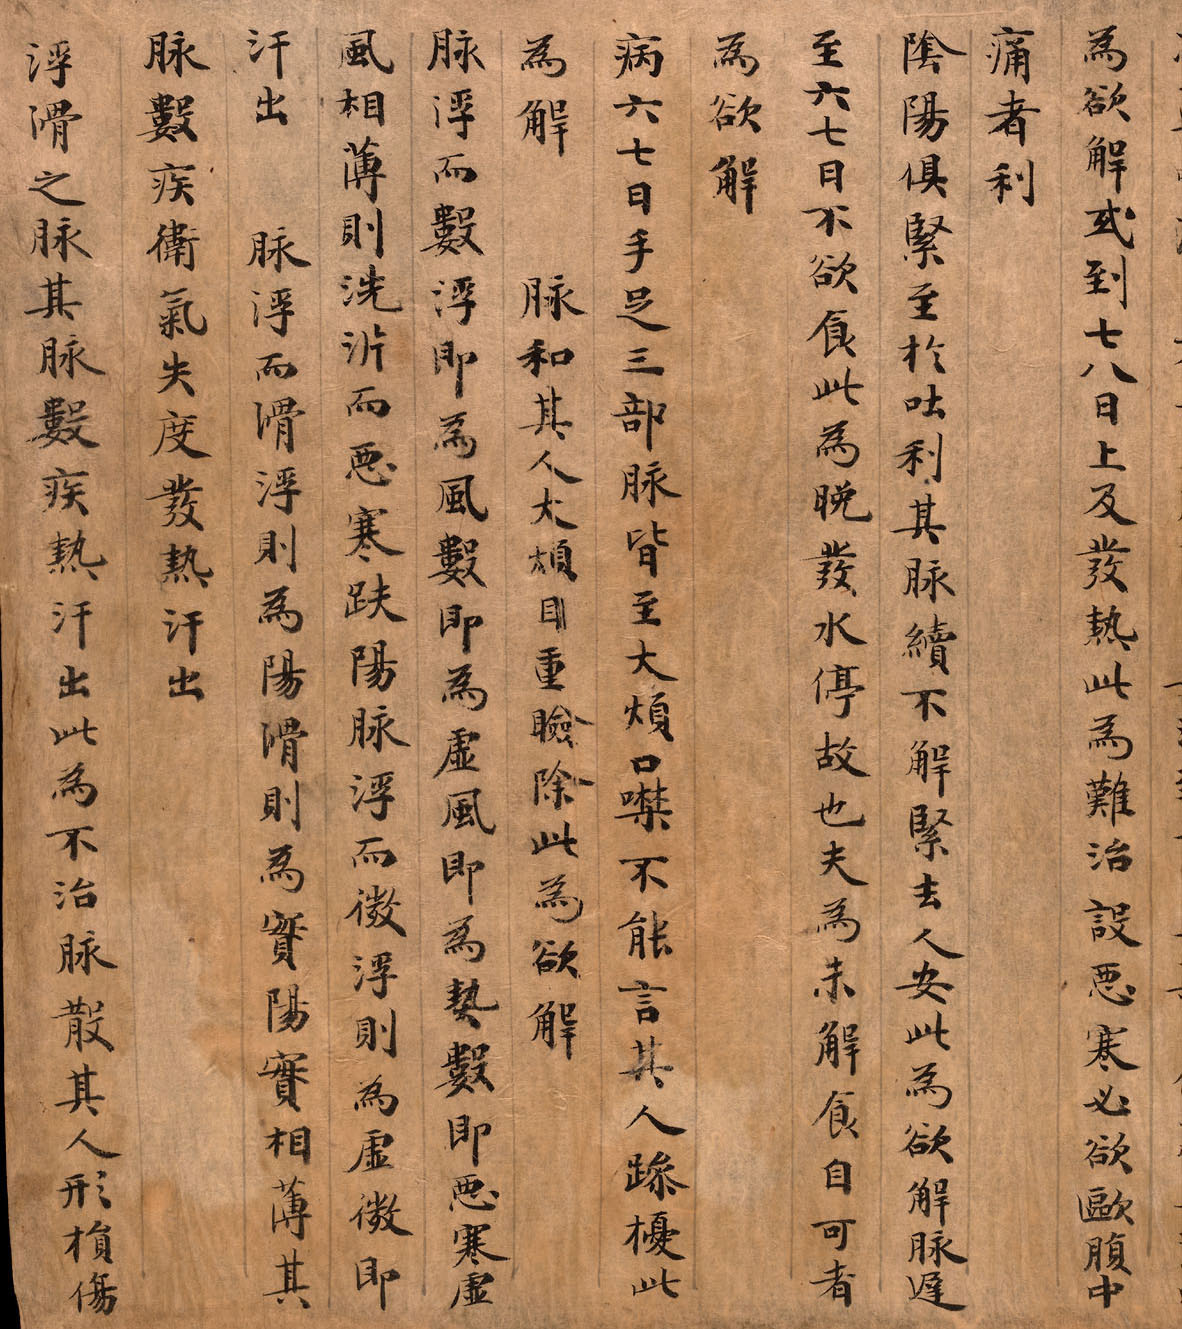 為欲解或到七八日上及發熱此為難治設惡寒必欲歐腹中
痛者利
陰陽俱緊至於吐利其脉續不解緊去人安此為欲解脉遲
至六七日不欲食此為晚發水停故也夫為未解食自可者
為欲解
病六七日手足三部脉皆至大煩口噤不能言其人躁擾此
為解 脉和其人大煩目重瞼除此為欲解
脉浮而數浮即為風數即為虛風即為熱數即惡寒虛
風相薄則洗淅而惡寒趺陽脉浮而微浮則為虛微即
汗出 脉浮而滑浮則為陽滑則為實陽實相薄其
脉數疾衛氣失度發熱汗出
浮滑之脉其脉數疾熱汗出此為不治脉散其人形損傷